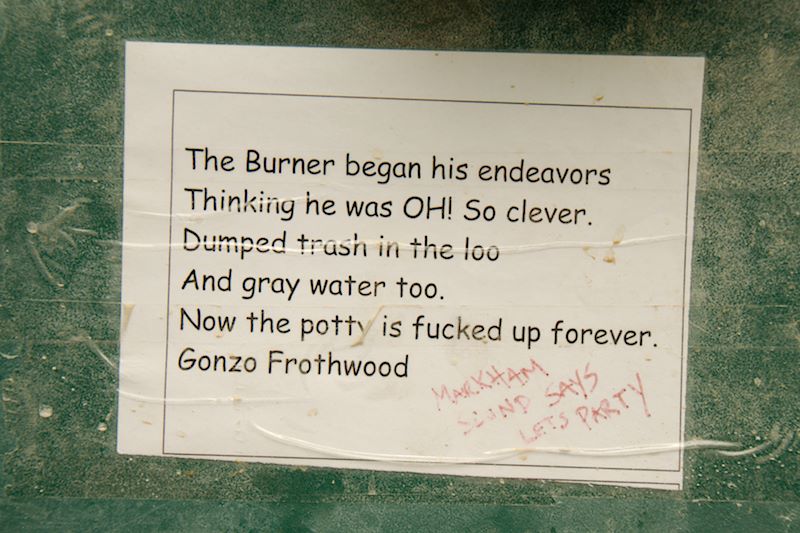 The Burner began his endeavors
Thinking he was OH! So clever.
Dumped trash in the loo
And gray water too.
Now the potty is fucked up forever.
Gonzo Frothwood
MARKHAM
SAYS
LETS PARTY